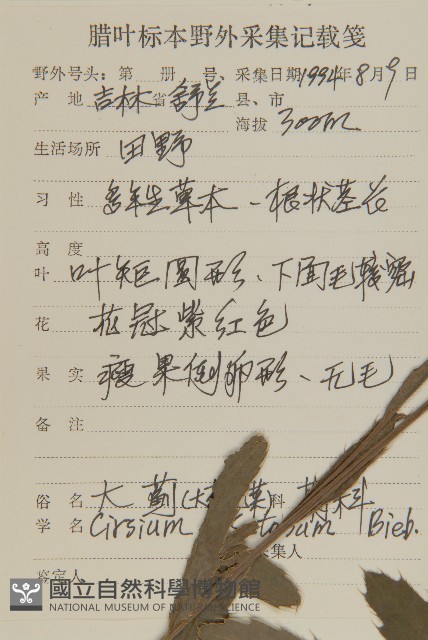 腊叶标本野外采集记载笺
野外号头：第 册 号、采集日期1994年8月9日
产 地 吉林省舒兰县、市
海拔 300m
生活场所 田野
习 性 多年生草本、根状茎长
高 度
叶 叶矩圆形、下面毛较密
花 花冠紫红色
果 实 瘦果倒卵形、无毛
备 注
俗 名 大蓟 科 菊科
学 名 Cirsium Bieb.
采集人
鉴定人
國立自然科學博物館
NATIONAL MUSEUM OF NATURAL SCIENCE